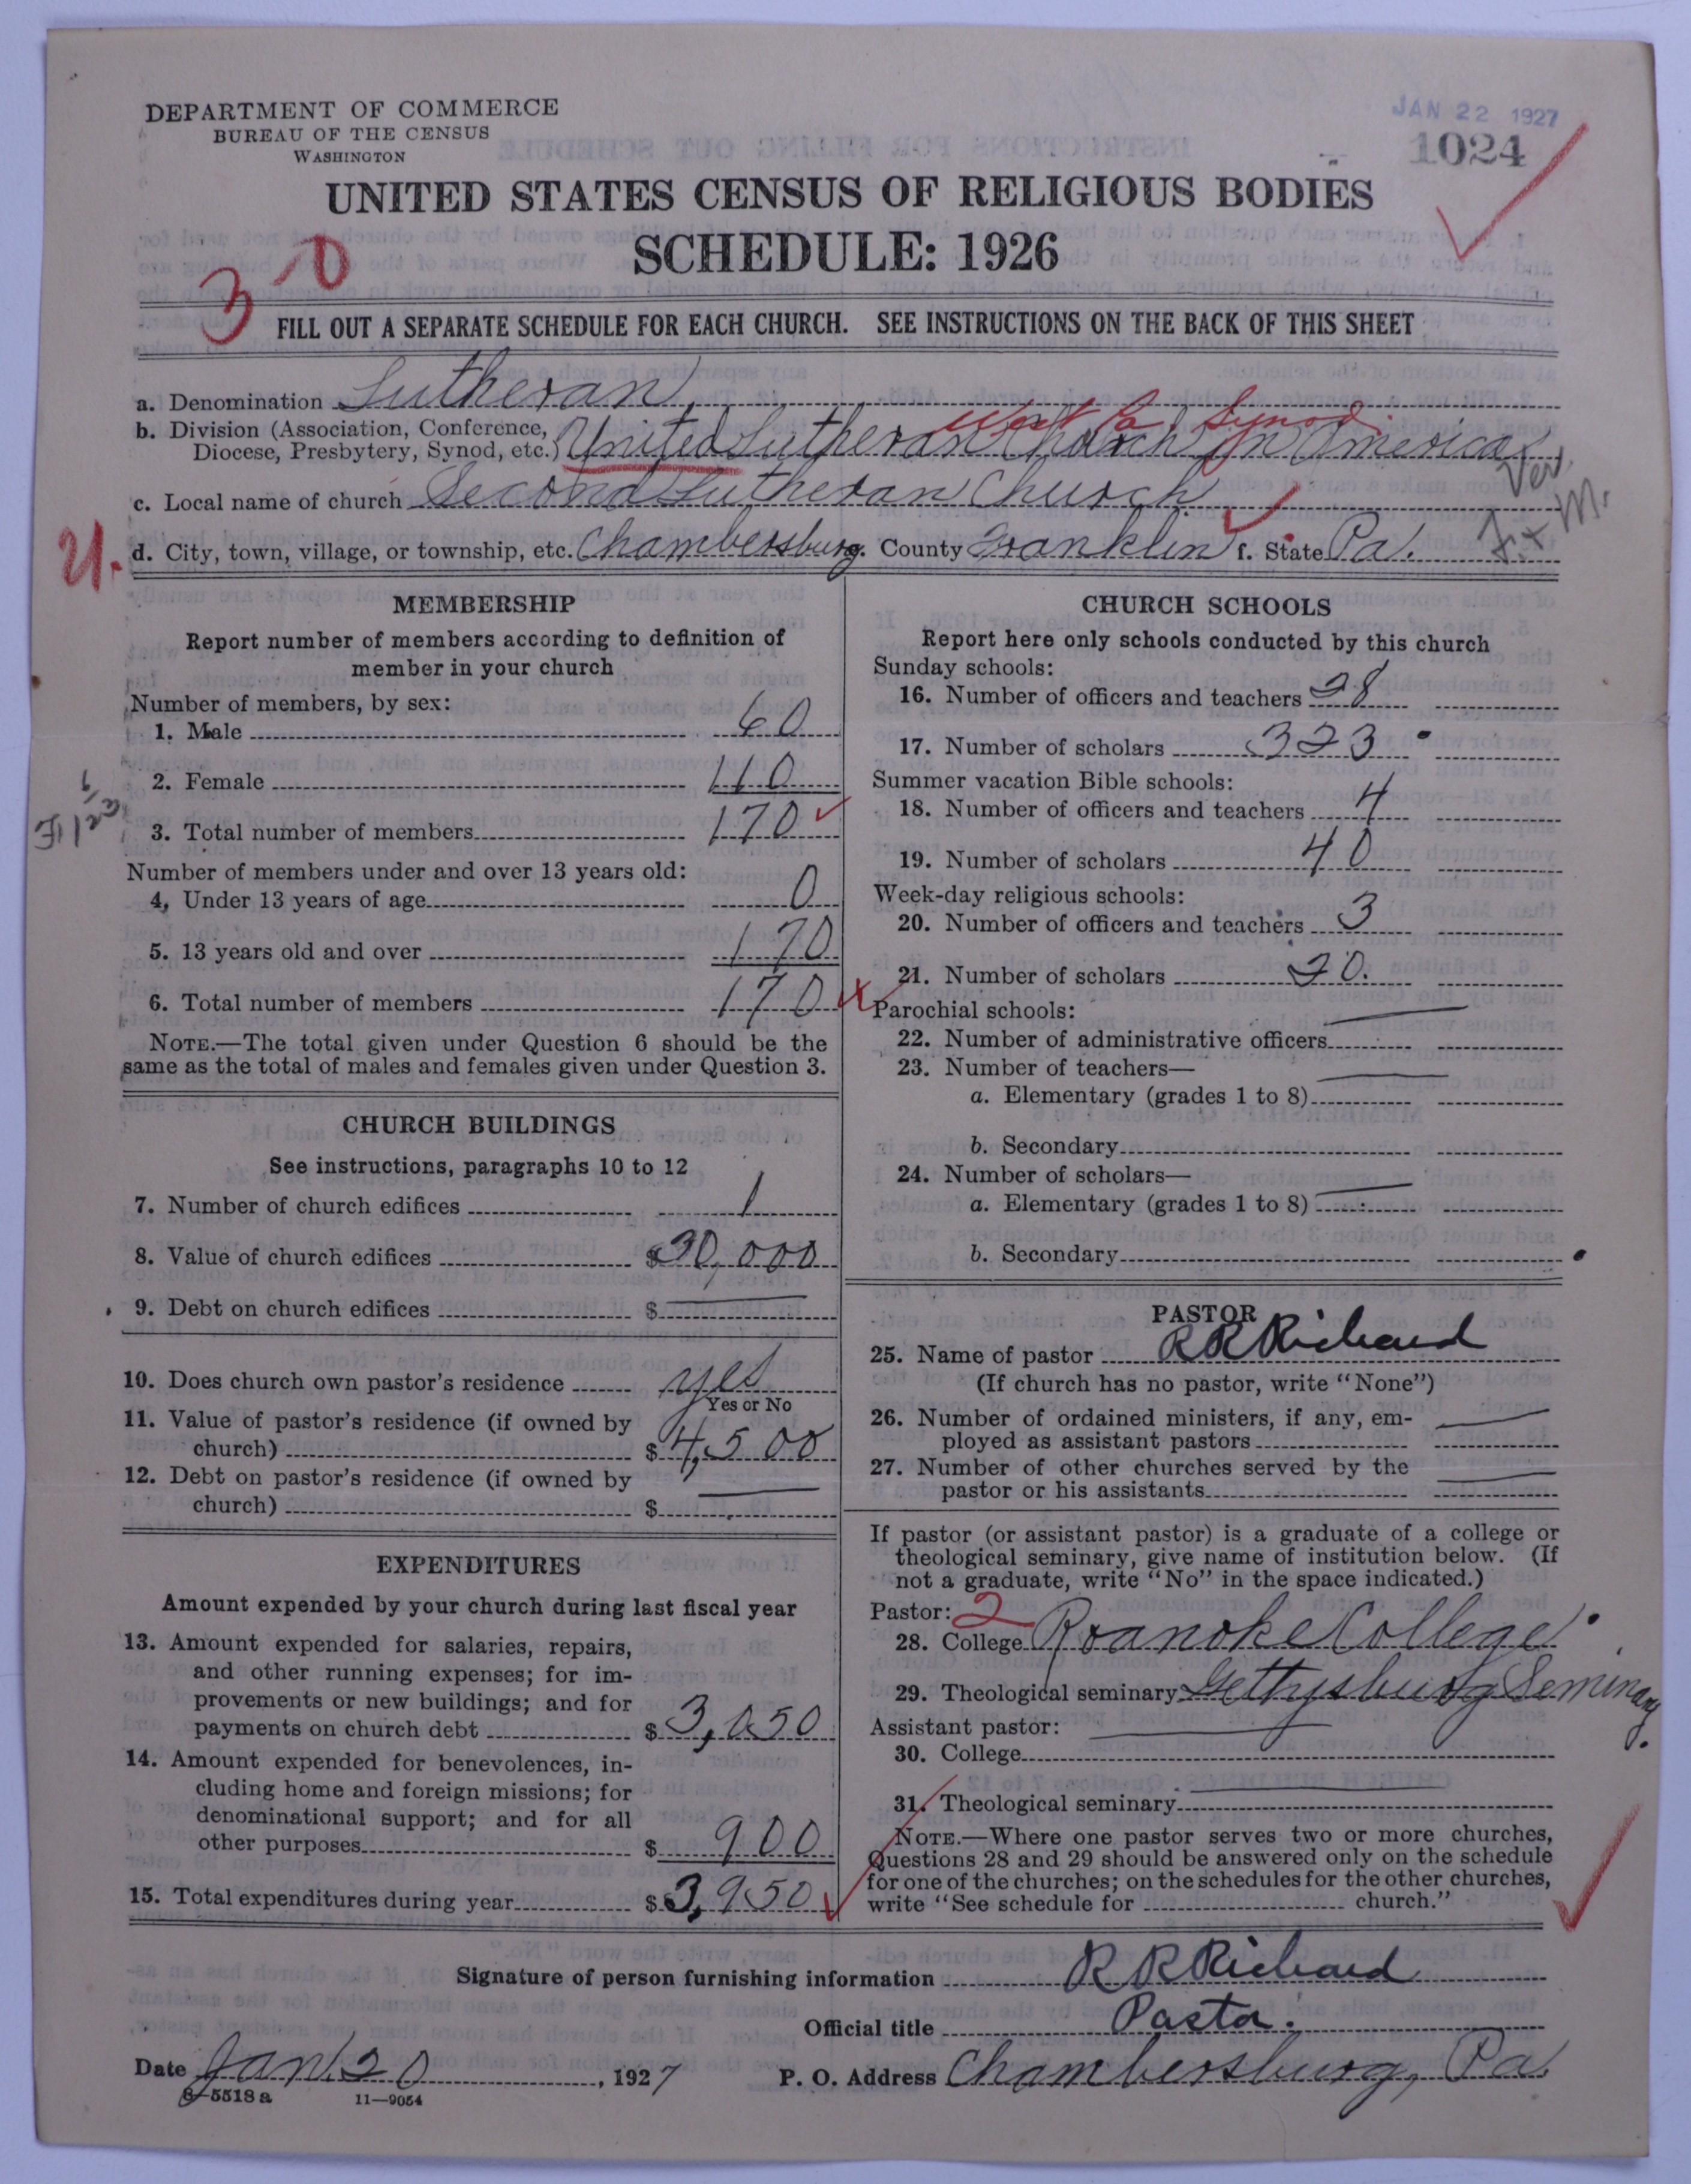 JAN 22 1927
DEPARTMENT OF COMMERCE
BUREAU OF THE CENSUS
WASHINGTON
1024
UNITED STATES CENSUS OF RELIGIOUS BODIES
SCHEDULE: 1926
30
FILL OUT A SEPARATE SCHEDULE FOR EACH CHURCH. SEE INSTRUCTIONS ON THE BACK OF THIS SHEET
a. Denomination Lutheran
West Pa. Synod.
b. Division (Association, Conference, Diocese, Presbytery, Synod, etc.) United Lutheran Church in America
Ver.
c. Local name of church Second Lutheran Church
F. + M.
21. d. City, town, village, or township, etc. Chambersburg. County Franklin f. State Pa.
MEMBERSHIP
Report number of members according to definition of
member in your church
Number of members, by sex:
1. Male 60
2. Female 110
3. Total number of members 170
Number of members under and over 13 years old:
4. Under 13 years of age 0
5. 13 years old and over 170
6. Total number of members 170
NOTE.—The total given under Question 6 should be the
same as the total of males and females given under Question 3.
CHURCH BUILDINGS
See instructions, paragraphs 10 to 12
7. Number of church edifices 1
8. Value of church edifices $30,000
9. Debt on church edifices $
10. Does church own pastor's residence yes
Yes or No
11. Value of pastor's residence (if owned by
church) $4,500
12. Debt on pastor's residence (if owned by
church) $
EXPENDITURES
Amount expended by your church during last fiscal year
13. Amount expended for salaries, repairs,
and other running expenses; for im-
provements or new buildings; and for
payments on church debt $3,050
14. Amount expended for benevolences, in-
cluding home and foreign missions; for
denominational support; and for all
other purposes $900
15. Total expenditures during year $3,950
CHURCH SCHOOLS
Report here only schools conducted by this church
Sunday schools:
16. Number of officers and teachers 28
17. Number of scholars 323
Summer vacation Bible schools:
18. Number of officers and teachers 4
19. Number of scholars 40
Week-day religious schools:
20. Number of officers and teachers 3
21. Number of scholars 20.
Parochial schools:
22. Number of administrative officers
23. Number of teachers—
a. Elementary (grades 1 to 8)
b. Secondary
24. Number of scholars—
a. Elementary (grades 1 to 8)
b. Secondary
PASTOR
25. Name of pastor R R Richard
(If church has no pastor, write "None")
26. Number of ordained ministers, if any, em-
ployed as assistant pastors
27. Number of other churches served by the
pastor or his assistants
If pastor (or assistant pastor) is a graduate of a college or
theological seminary, give name of institution below. (If
not a graduate, write "No" in the space indicated.)
Pastor: 2
28. College Roanoke College
29. Theological seminary Gettysburg Seminary.
Assistant pastor:
30. College
31. Theological seminary
NOTE.—Where one pastor serves two or more churches,
Questions 28 and 29 should be answered only on the schedule
for one of the churches; on the schedules for the other churches,
write "See schedule for church."
Signature of person furnishing information R R Richard
Official title Pastor.
Date Jan. 20, 1927 P. O. Address Chambersburg, Pa.
8—5518 a 11—9054